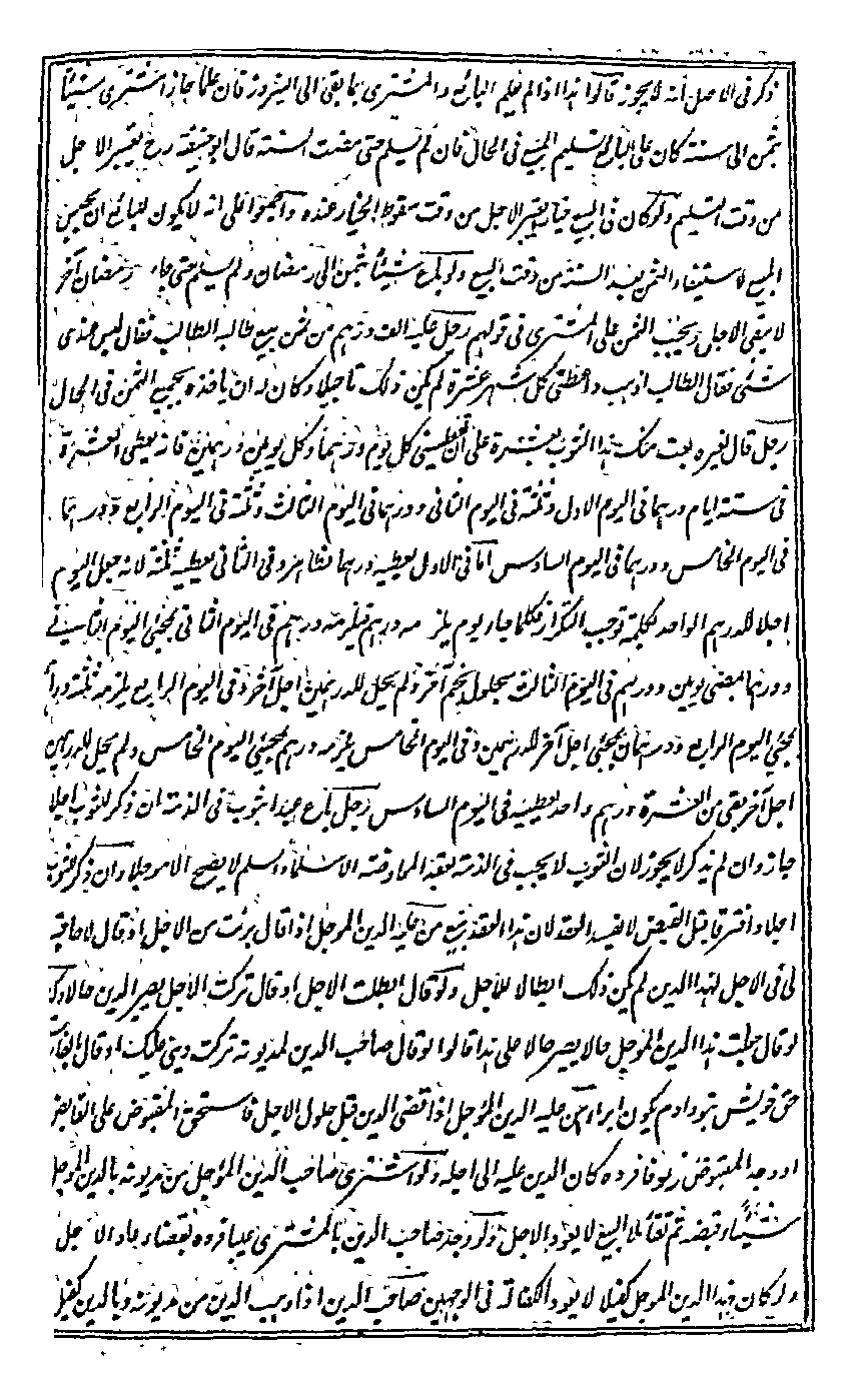 ذكر فى الاصل انه لا يجوز قالوا هذا اذا لم يعلم البائع و المشترى بما بقى الى النيروز فان علما جاز اشترى شيئا
بثمن الى سنة كان على البائع تسليم المبيع فى الحال فان لم يسلم حتى مضت السنة قال ابو حنيفة رح يعتبر الاجل
من وقت التسليم ولو كان فى البيع خيار يعتبر الاجل من وقت سقوط الخيار عنده واجمعوا على انه لا يكون للبائع ان يحبس
المبيع لاستيفاء الثمن بعد السنة من وقت البيع ولو باع شيئا بثمن الى رمضان ولم يسلم حتى جاء رمضان آخر
لا يبقى الاجل ويجب الثمن على المشترى فى قولهم رجل عليه الف درهم من ثمن بيع طالبه الطالب فقال ليس عندى
شئ فقال الطالب اذهب واعطنى كل شهر عشرة لم يكن ذلك تأجيلا وكان له ان يأخذه بجميع الثمن فى الحال
رجل قال لغيره بعت منك هذا الثوب بعشرة على ان تعطينى كل يوم درهما وكل يومين درهمين فانه يعطى العشرة
فى ستة ايام درهما فى اليوم الاول وثلثة فى اليوم الثانى ودرهما فى اليوم الثالث وثلثة فى اليوم الرابع ودرهما
فى اليوم الخامس ودرهما فى اليوم السادس اما فى الاول يعطيه درهما فظاهر وفى الثانى يعطيه ثلثة لانه جعل اليوم
اجلا للدرهم الواحد بكلمة توجب التكرار فكلما جاء يوم يلزمه درهم فيلزمه درهم فى اليوم الثانى بمجئ اليوم الثانى
ودرهما بمضى يومين ودرهم فى اليوم الثالث بحلول نجم آخر ولم يحل للدرهمين اجل آخر وفى اليوم الرابع يلزمه ثلثة درهم
بمجئ اليوم الرابع ودرهمان بمجئ اجل آخر للدرهمين وفى اليوم الخامس يلزمه درهم بمجئ اليوم الخامس ولم يحل للدرهمين
اجل آخر بقى من العشرة درهم واحد يعطيه فى اليوم السادس رجل باع عبدا بثوب فى الذمة ان ذكر للثوب اجلا
جاز وان لم يذكر لا يجوز لان الثوب لا يجب فى الذمة بعقد المعاوضة الا سلما والسلم لا يصح الا مؤجلا وان ذكر للثوب
اجلا وافترقا قبل القبض لا يفسد العقد لان هذا العقد بيع من عليه الدين المؤجل اذا قال برئت من الاجل او قال لا حاجة
لى فى الاجل لهذا الدين لم يكن ذلك ابطالا للاجل ولو قال ابطلت الاجل او قال تركت الاجل يصير الدين حالا وكذا
لو قال جعلت هذا الدين المؤجل حالا يصير حالا على هذا قالوا لو قال صاحب الدين لمديونه تركت دينى عليك او قال بالفارسية
حق خويش بتو دادم يكون ابراء من عليه الدين المؤجل اذا قضى الدين قبل حلول الاجل فاستحق المقبوض على القابض
او وجد المقبوض زيوفا فرده كان الدين عليه الى اجله ولو اشترى صاحب الدين المؤجل من مديونه بالدين المؤجل
شيئا وقبضه ثم تقايلا البيع لا يعود الاجل ولو وجد صاحب الدين بالمشترى عيبا فرده بقضاء عاد الاجل
ولو كان بهذا الدين المؤجل كفيلا لا يعود الكفالة فى الوجهين صاحب الدين اذا وهب الدين من مديونه وبالدين كفيل